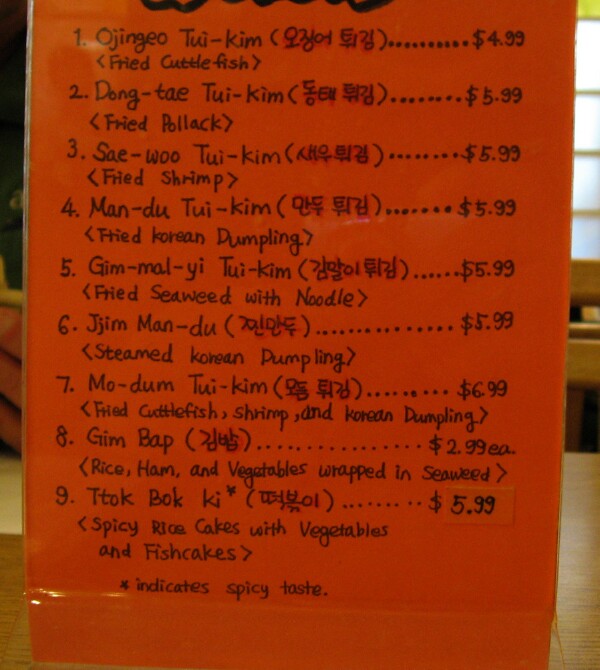 1. Ojingeo Tui-kim (오징어 튀김)..........$4.99
<Fried Cuttlefish>
2. Dong-tae Tui-kim (동태 튀김)........$5.99
<Fried Pollack>
3. Sae-woo Tui-kim (새우튀김)........$5.99
<Fried Shrimp>
4. Man-du Tui-kim (만두 튀김).......$5.99
<Fried korean Dumpling>
5. Gim-mal-yi Tui-kim (김말이튀김)......$5.99
<Fried Seaweed with Noodle>
6. Jjim Man-du (찐만두)................$5.99
<Steamed korean Dumpling>
7. Mo-dum Tui-kim (모듬 튀김).........$6.99
<Fried Cuttlefish, Shrimp, and korean Dumpling>
8. Gim Bap (김밥)...................$2.99ea.
<Rice, Ham, and Vegetables wrapped in Seaweed>
9. Ttok Bok ki* (떡볶이).........$ 5.99
<Spicy Rice Cakes with Vegetables
and Fishcakes>
* indicates spicy taste.